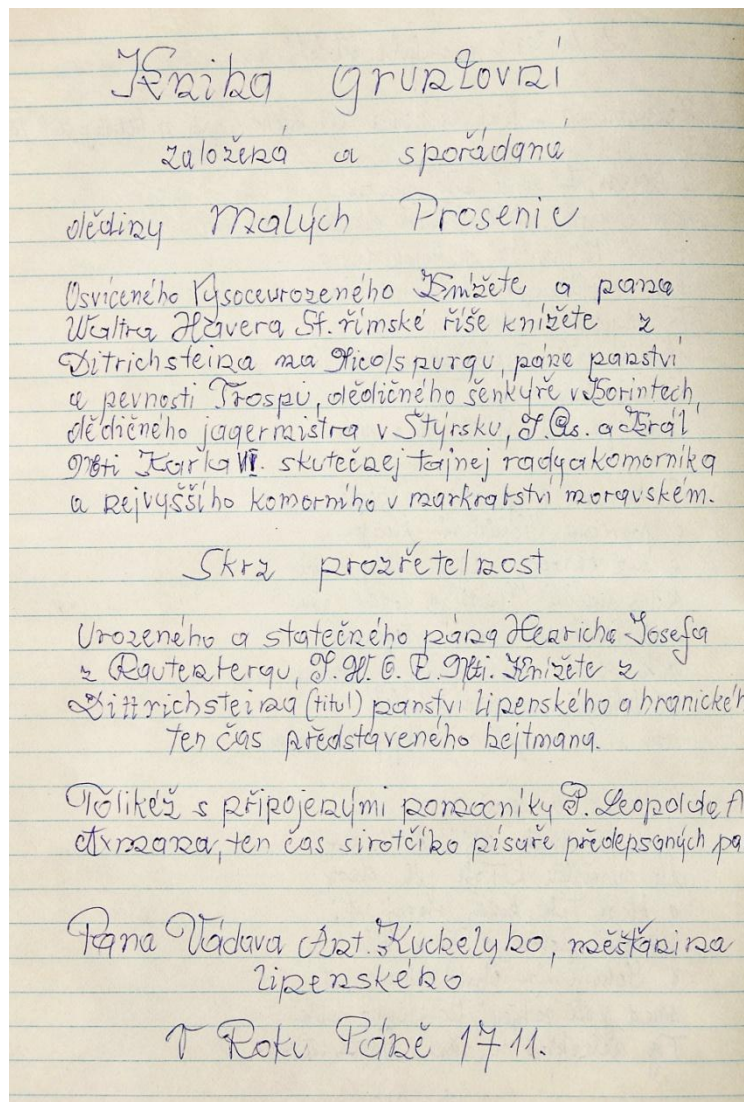 Kniha gruntovní
založená a spořádaná
dědiny Malých Prosenic
Osvíceného Vysoceurozeného Knížete a pana
Waltra Havera St. římské říše knížete z
Ditrichsteina na Nicolspurgu, páne panství
a pevnosti Trospu, dědičného šenkýře v Korintech,
dědičného jagermistra v Štýrsku, J. Cís. a Král
Mti Karla VI. skutečnej tajnej rady a komorníka
a nejvyššího komorního v markrabství moravském.
Skrz prozřetelnost
Urozeného a statečného pána Henricha Josefa
z Rautenbergu, J. W. O. E. Mti. Knížete z
Dittrichsteina (titul) panství lipenského a hranickéh
ten čas představeného hejtmana.
Tolikéž s připojenými pomocníky P. Leopolda A
ten čas sirotčího písaře předepsaných pa
Pana Václava Ant. Kuckelyho, měštánina
lipenského
V Roku Páně 1711.